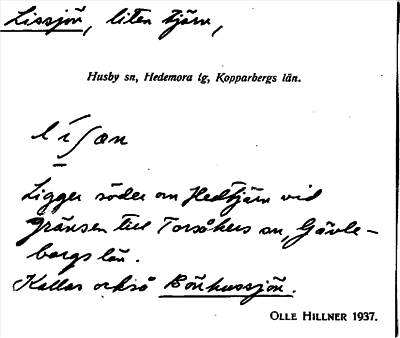 Lissjön, liten tjärn,
Husby sn, Hedemora tg, Kopparbergs län.
lísøn
Ligger söder om Hedtjärn vid
gränsen till Torsåkers sn, Gävle-
borgs län.
Kallas också Bönhussjön.
OLLE HILLNER 1937.